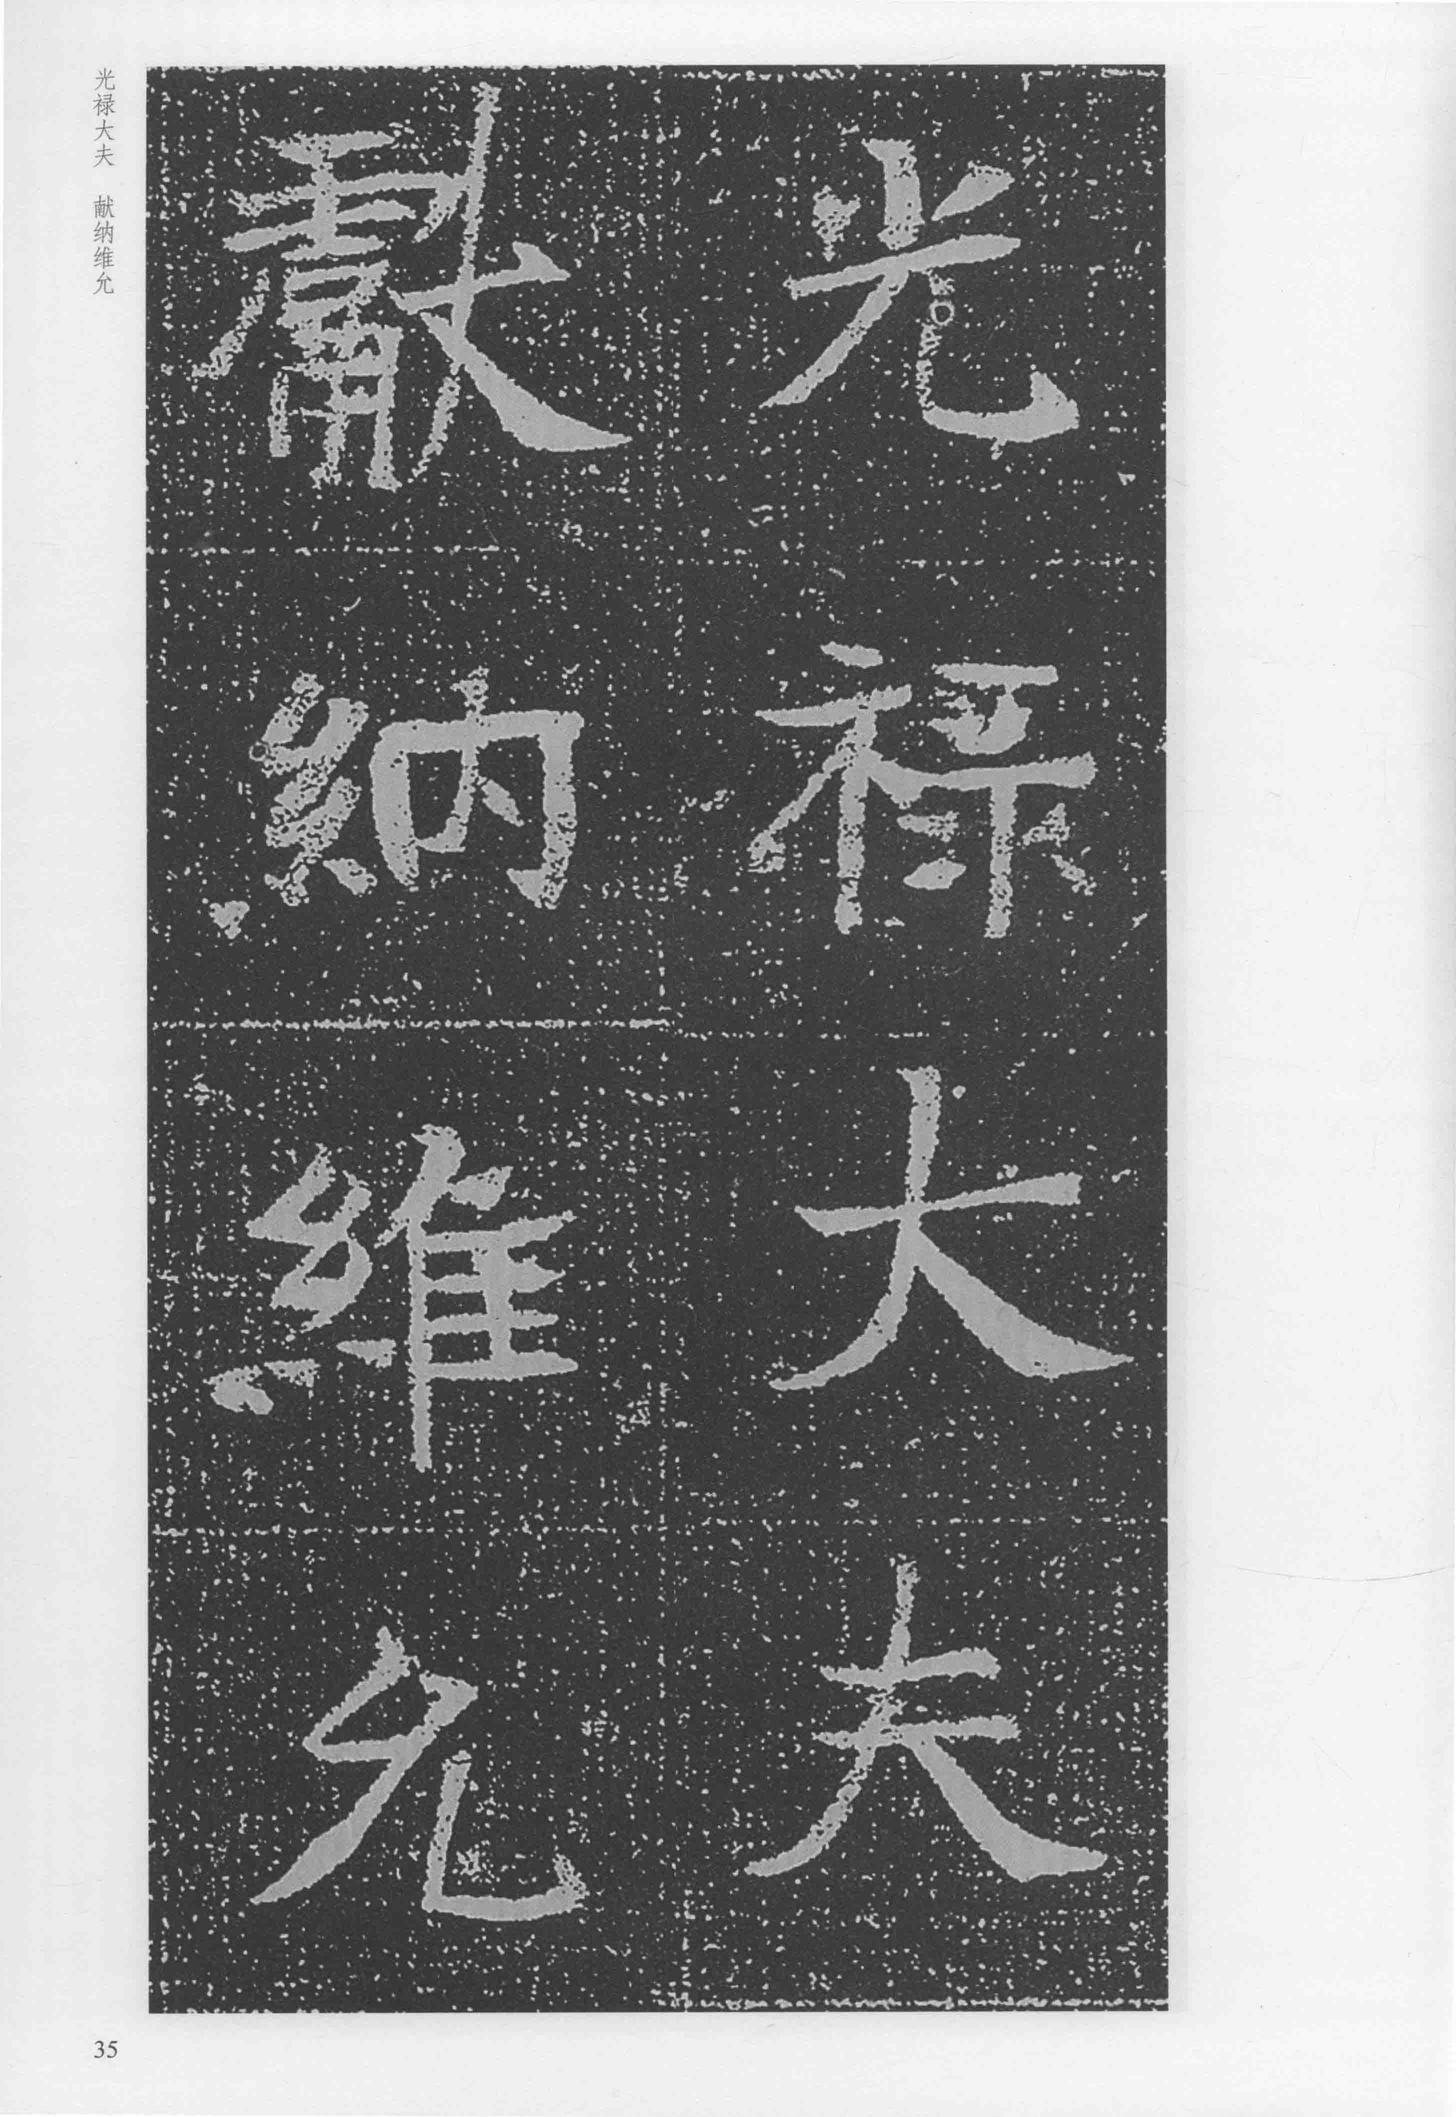 光祿大夫
獻納維允
光禄大夫 献纳维允
35